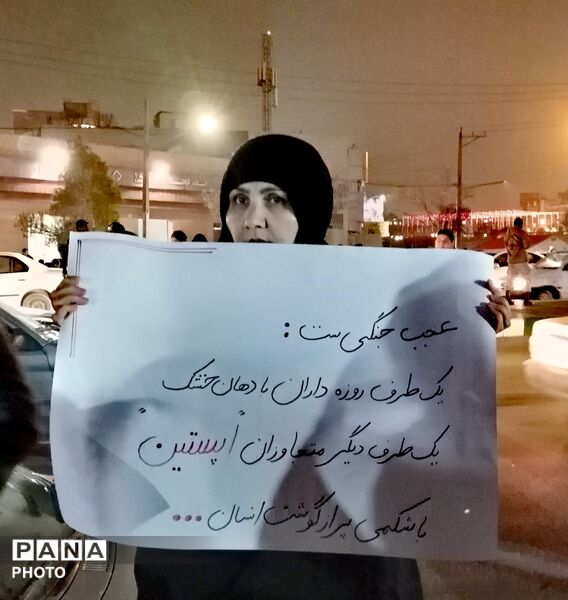 عجب جنگی ست :
یک طرف روزه داران با دهان خشک
یک طرف دیگر متجاوزان "اپستین"
با شکمی پر از گوشت انسان ...
PANA
PHOTO